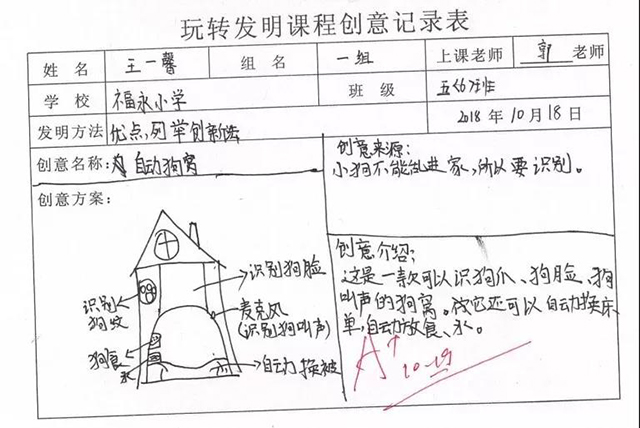 玩转发明课程创意记录表
姓 名 王一馨 组 名 一组 上课老师 郭 老师
学 校 福永小学 班 级 五〈6〉班
发明方法 优点,列举创新法 2018 年 10 月 18 日
创意名称: 自动狗窝
创意来源:
小狗不能乱进家,所以要识别。
创意方案:
识别狗脸
识别
狗纹
麦克风
(识别狗叫声)
狗食
水
自动换被
创意介绍:
这是一款可以识狗爪、狗脸、狗
叫声的狗窝。它还可以自动换床
单,自动放食、水。
A↑
10-19